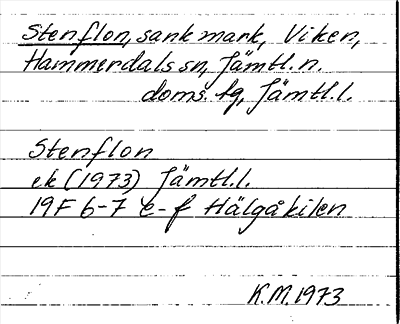 Stenflon, sank mark, Viken,
Hammerdals sn, Jämtl. n.
doms. tg, Jämtl. l.
Stenflon
ek (1973) Jämtl. l.
19F 6-7 e-f Hälgåkilen
K.M. 1973